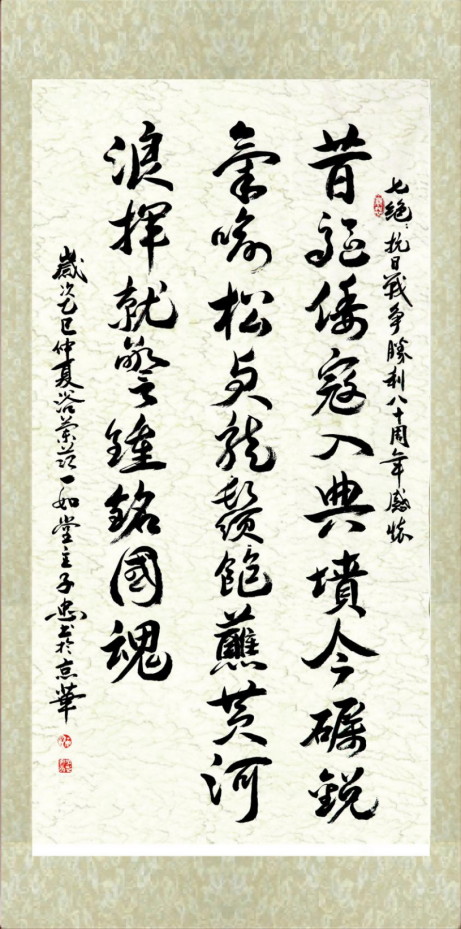 七绝：抗日战争勝利八十周年感怀
昔驱倭寇入典墳今礪銳
氣喻松貞龍鬚飽蘸黄河
浪揮就警鍾銘國魂
歲次乙巳仲夏浴蘭節一如堂主子忠书於京華